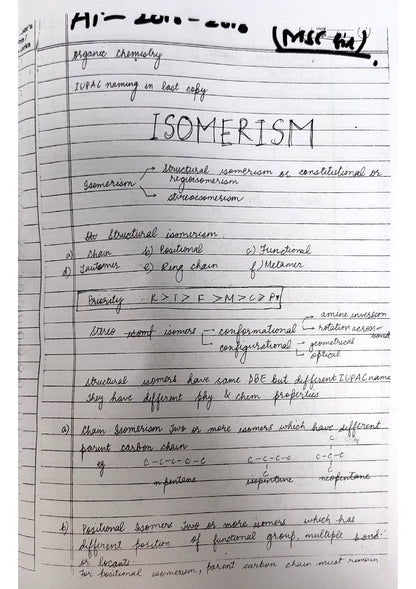 (MSC
Organic Chemistry
IUPAC naming in last copy
ISOMERISM
Isomerism → structural isomerism or constitutional or
regioisomerism
→ stereoisomerism
Structural isomerism:
a) Chain b) Positional c) Functional
d) Tautomer e) Ring chain f) Metamer
Priority R > T > F > M > C > P
→ amine inversion
Stereo isomers → conformational → rotation across bond
→ configurational → geometrical
→ optical
structural isomers have same DBE but different IUPAC name
They have different phy & chem properties
a) Chain Isomerism Two or more isomers which have different
parent carbon chain
C
eg C-C-C-C-C C-C-C-C C-C-C
C C
n pentane isopentane neopentane
b) Positional Isomers Two or more isomers which has
different position of functional group, multiple bond
or locants
For positional isomerism, parent carbon chain must remain